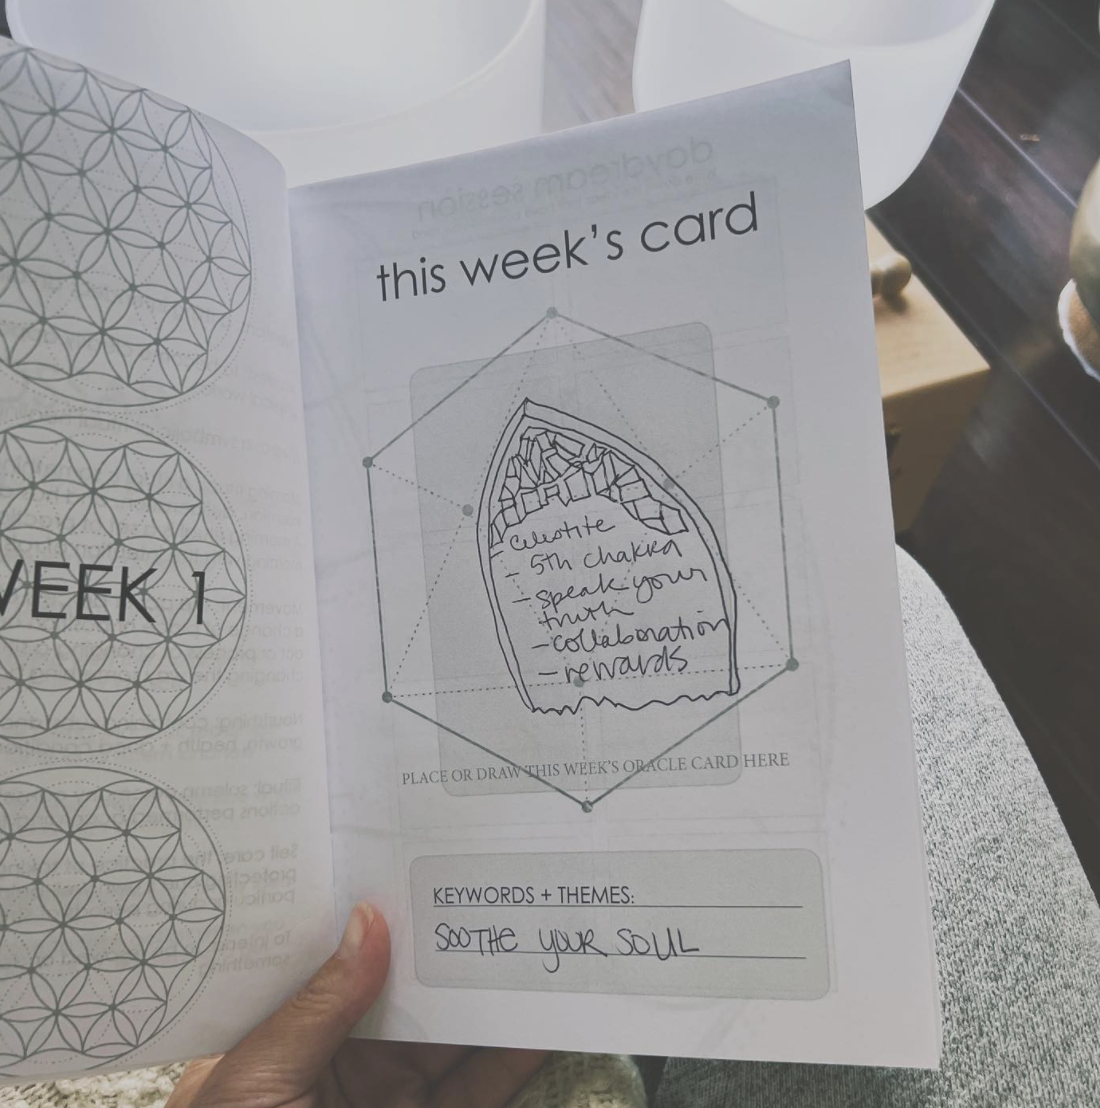 WEEK 1
this week's card
- Celestite
- 5th chakra
- speak your
truth
- collaboration
- rewards
PLACE OR DRAW THIS WEEK'S ORACLE CARD HERE
KEYWORDS + THEMES:
SOOTHE YOUR SOUL
daydream session